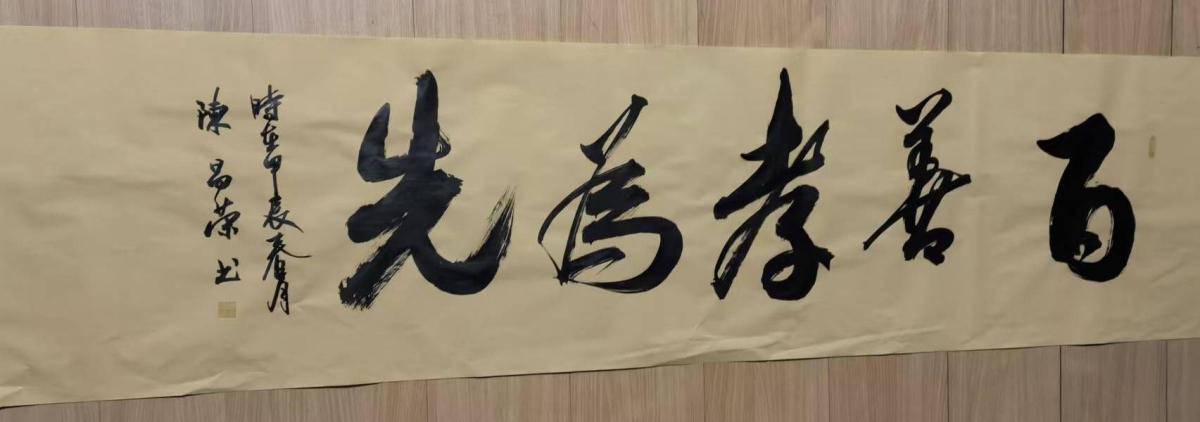 百善孝為先
時在甲辰春月
陳昌榮書